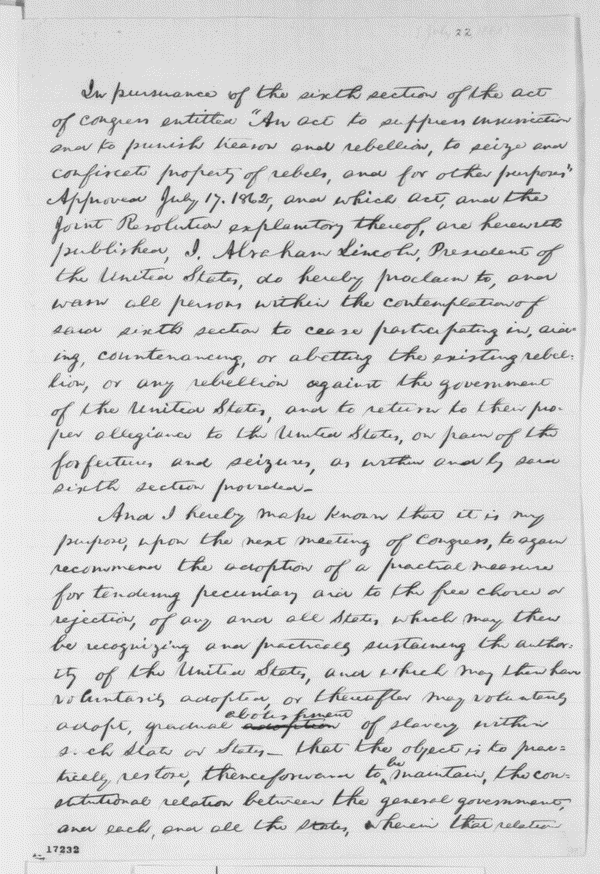 22
In pursuance of the sixth section of the act
of congress entitled "An act to suppress insurrection
and to punish treason and rebellion, to seize and
confiscate property of rebels, and for other purposes"
Approved July 17. 1862, and which act, and the
Joint Resolution explanatory thereof, are herewith
published, I, Abraham Lincoln, President of
the United States, do hereby proclaim to, and
warn all persons within the contemplation of
said sixth section to cease participating in, aid-
ing, countenancing, or abetting the existing rebel-
lion, or any rebellion against the government
of the United States, and to return to their pro-
per allegiance to the United States, on pain of the
forfeitures and seizures, as within and by said
sixth section provided—
And I hereby make known that it is my
purpose, upon the next meeting of Congress, to again
recommend the adoption of a practical measure
for tendering pecuniary aid to the free choice or
rejection, of any and all States which may then
be recognizing and practically sustaining the author-
ity of the United States, and which may then have
voluntarily adopted, or thereafter may voluntarily
abolishment
adopt, gradual adoption of slavery within
such State or States— that the object is to prac-
tically restore, thenceforward to be maintain, the con-
stitutional relation between the general government,
and each, and all the states, wherein that relation
17232